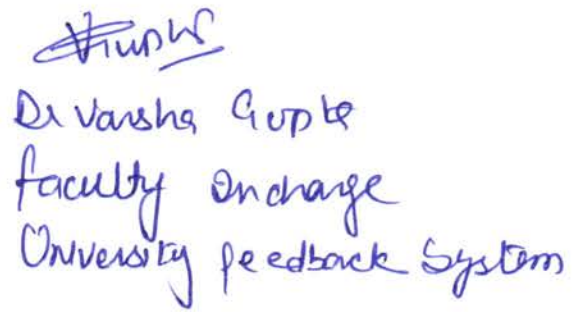 Dr Varsha Gupta
faculty Incharge
University feedback System